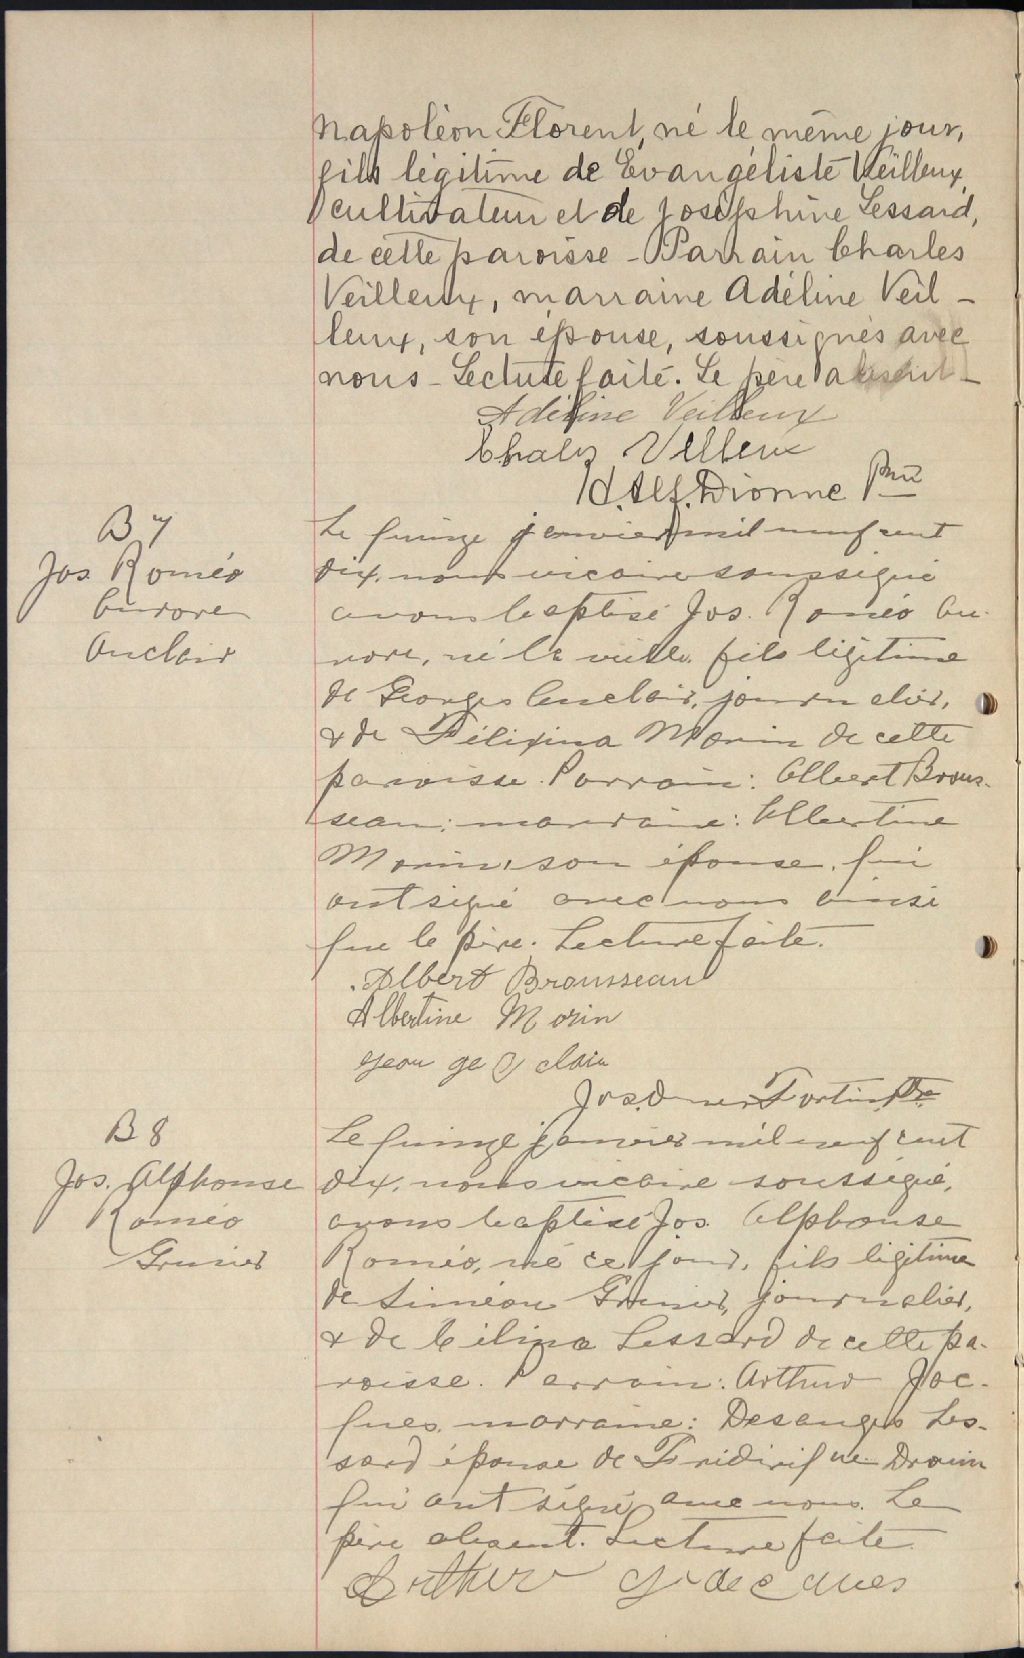 Napoléon Florent, né le même jour,
fils légitime de Evangéliste Veilleux,
cultivateur et de Joséphine Lessard,
de cette paroisse - Parrain Charles
Veilleux, marraine Adéline Veil-
leux, son épouse, soussignés avec
nous - Lecture faite. Le père absent -
Adéline Veilleux
Chales Velleux
Alf. Dionne Ptre
B 7
Jos. Roméo
Aurore
Auclair
Le quinze janvier mil neuf cent
dix, nous vicaire soussigné
avons baptisé Jos. Roméo Au-
rore, né la veille, fils légitime
de Georges Auclair, journalier,
& de Félixina Morin de cette
paroisse. Parrain: Albert Brous-
seau; marraine: Albertine
Morin, son épouse, qui
ont signé avec nous ainsi
que le père. Lecture faite.
Albert Brousseau
Albertine Morin
clair
Jos. Omer Fortin Ptre
B 8
Jos. Alphonse
Roméo
Grenier
Le quinze janvier mil neuf cent
dix, nous vicaire soussigné,
avons baptisé Jos. Alphonse
Roméo, né ce jour, fils légitime
de Siméon Grenier, journalier,
& de Célina Lessard de cette pa-
roisse. Parrain: Arthur Jac-
ques, marraine: Desanges Les-
sard épouse de Frédérique Drouin
qui ont signé avec nous. Le
père absent. Lecture faite
Arthur Jacques